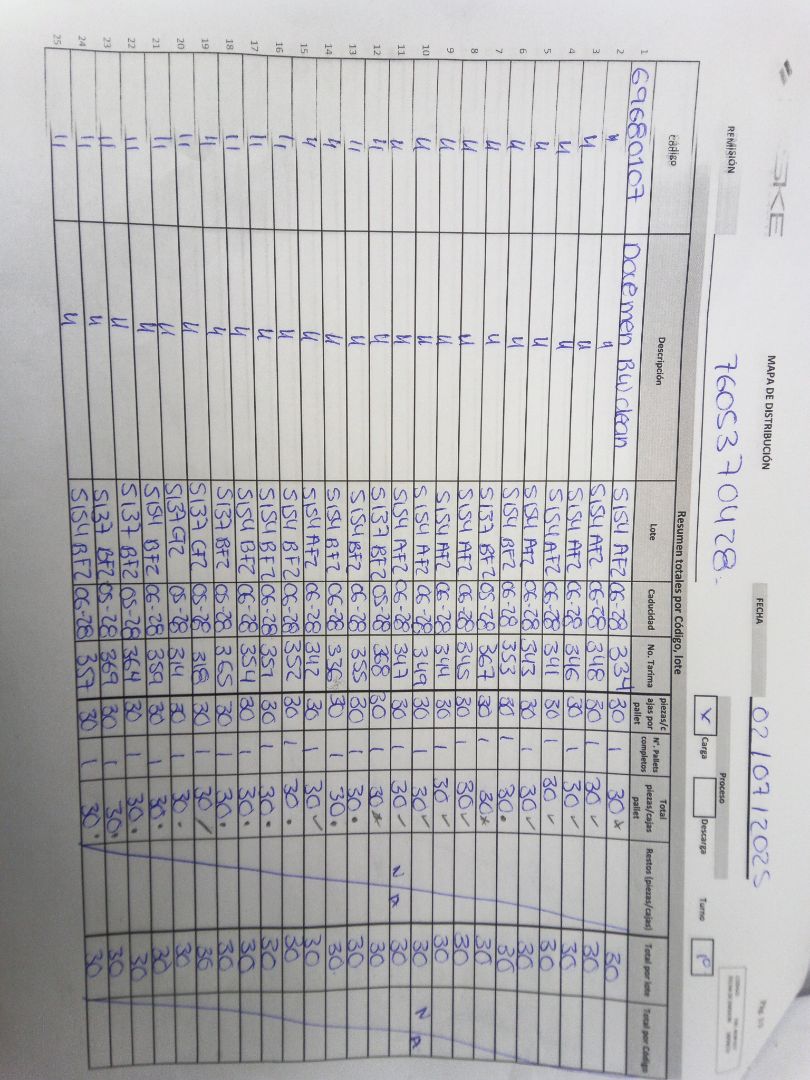 SKE
MAPA DE DISTRIBUCIÓN
Pag. 1/1
REMISIÓN 7605370428. FECHA 02/07/2025
Proceso
x Carga Descarga Turno 1º
Resumen totales por Código, lote
Código Descripción Lote Caducidad No. Tarima piezas/cajas por pallet Nº. Pallets completos Total piezas/cajas pallet Restos (piezas/cajas) Total por lote Total por Código
1 69680107 S154 AF2 06-28 334 30 1 30 x 30
2 " " S154 AF2 06-28 348 30 1 30 ✓ 30
3 " " S154 AF2 06-28 346 30 1 30 ✓ 30
4 " " S154 AF2 06-28 341 30 1 30 ✓ 30
5 " " S154 AF2 06-28 343 30 1 30 ✓ 30
6 " " S154 BF2 06-28 353 30 1 30 • 30
7 " " S137 BF2 05-28 367 30 1 30 x 30
8 " " S154 AF2 06-28 345 30 1 30 ✓ 30
9 " " S154 AF2 06-28 344 30 1 30 ✓ 30
10 " " S154 AF2 06-28 349 30 1 30 ✓ 30 NA
11 " " S154 AF2 06-28 347 30 1 30 ✓ NA 30
12 " " S137 BF2 05-28 368 30 1 30 x 30
13 " " S154 BF2 06-28 355 30 1 30 • 30
14 " " S154 BF2 06-28 336 30 1 30 • 30
15 " " S154 AF2 06-28 342 30 1 30 ✓ 30
16 " " S154 BF2 06-28 352 30 1 30 • 30
17 " " S154 BF2 06-28 351 30 1 30 • 30
18 " " S154 BF2 06-28 354 30 1 30 • 30
19 " " S137 BF2 05-28 365 30 1 30 • 30
20 " " S137 CF2 05-28 318 30 1 30 / 30
21 " " S137 CF2 05-28 314 30 1 30 • 30
22 " " S154 BF2 06-28 359 30 1 30 • 30
23 " " S137 BF2 05-28 364 30 1 30 • 30
24 " " S137 BF2 05-28 369 30 1 30 • 30
25 " " S154 BF2 06-28 357 30 1 30 • 30